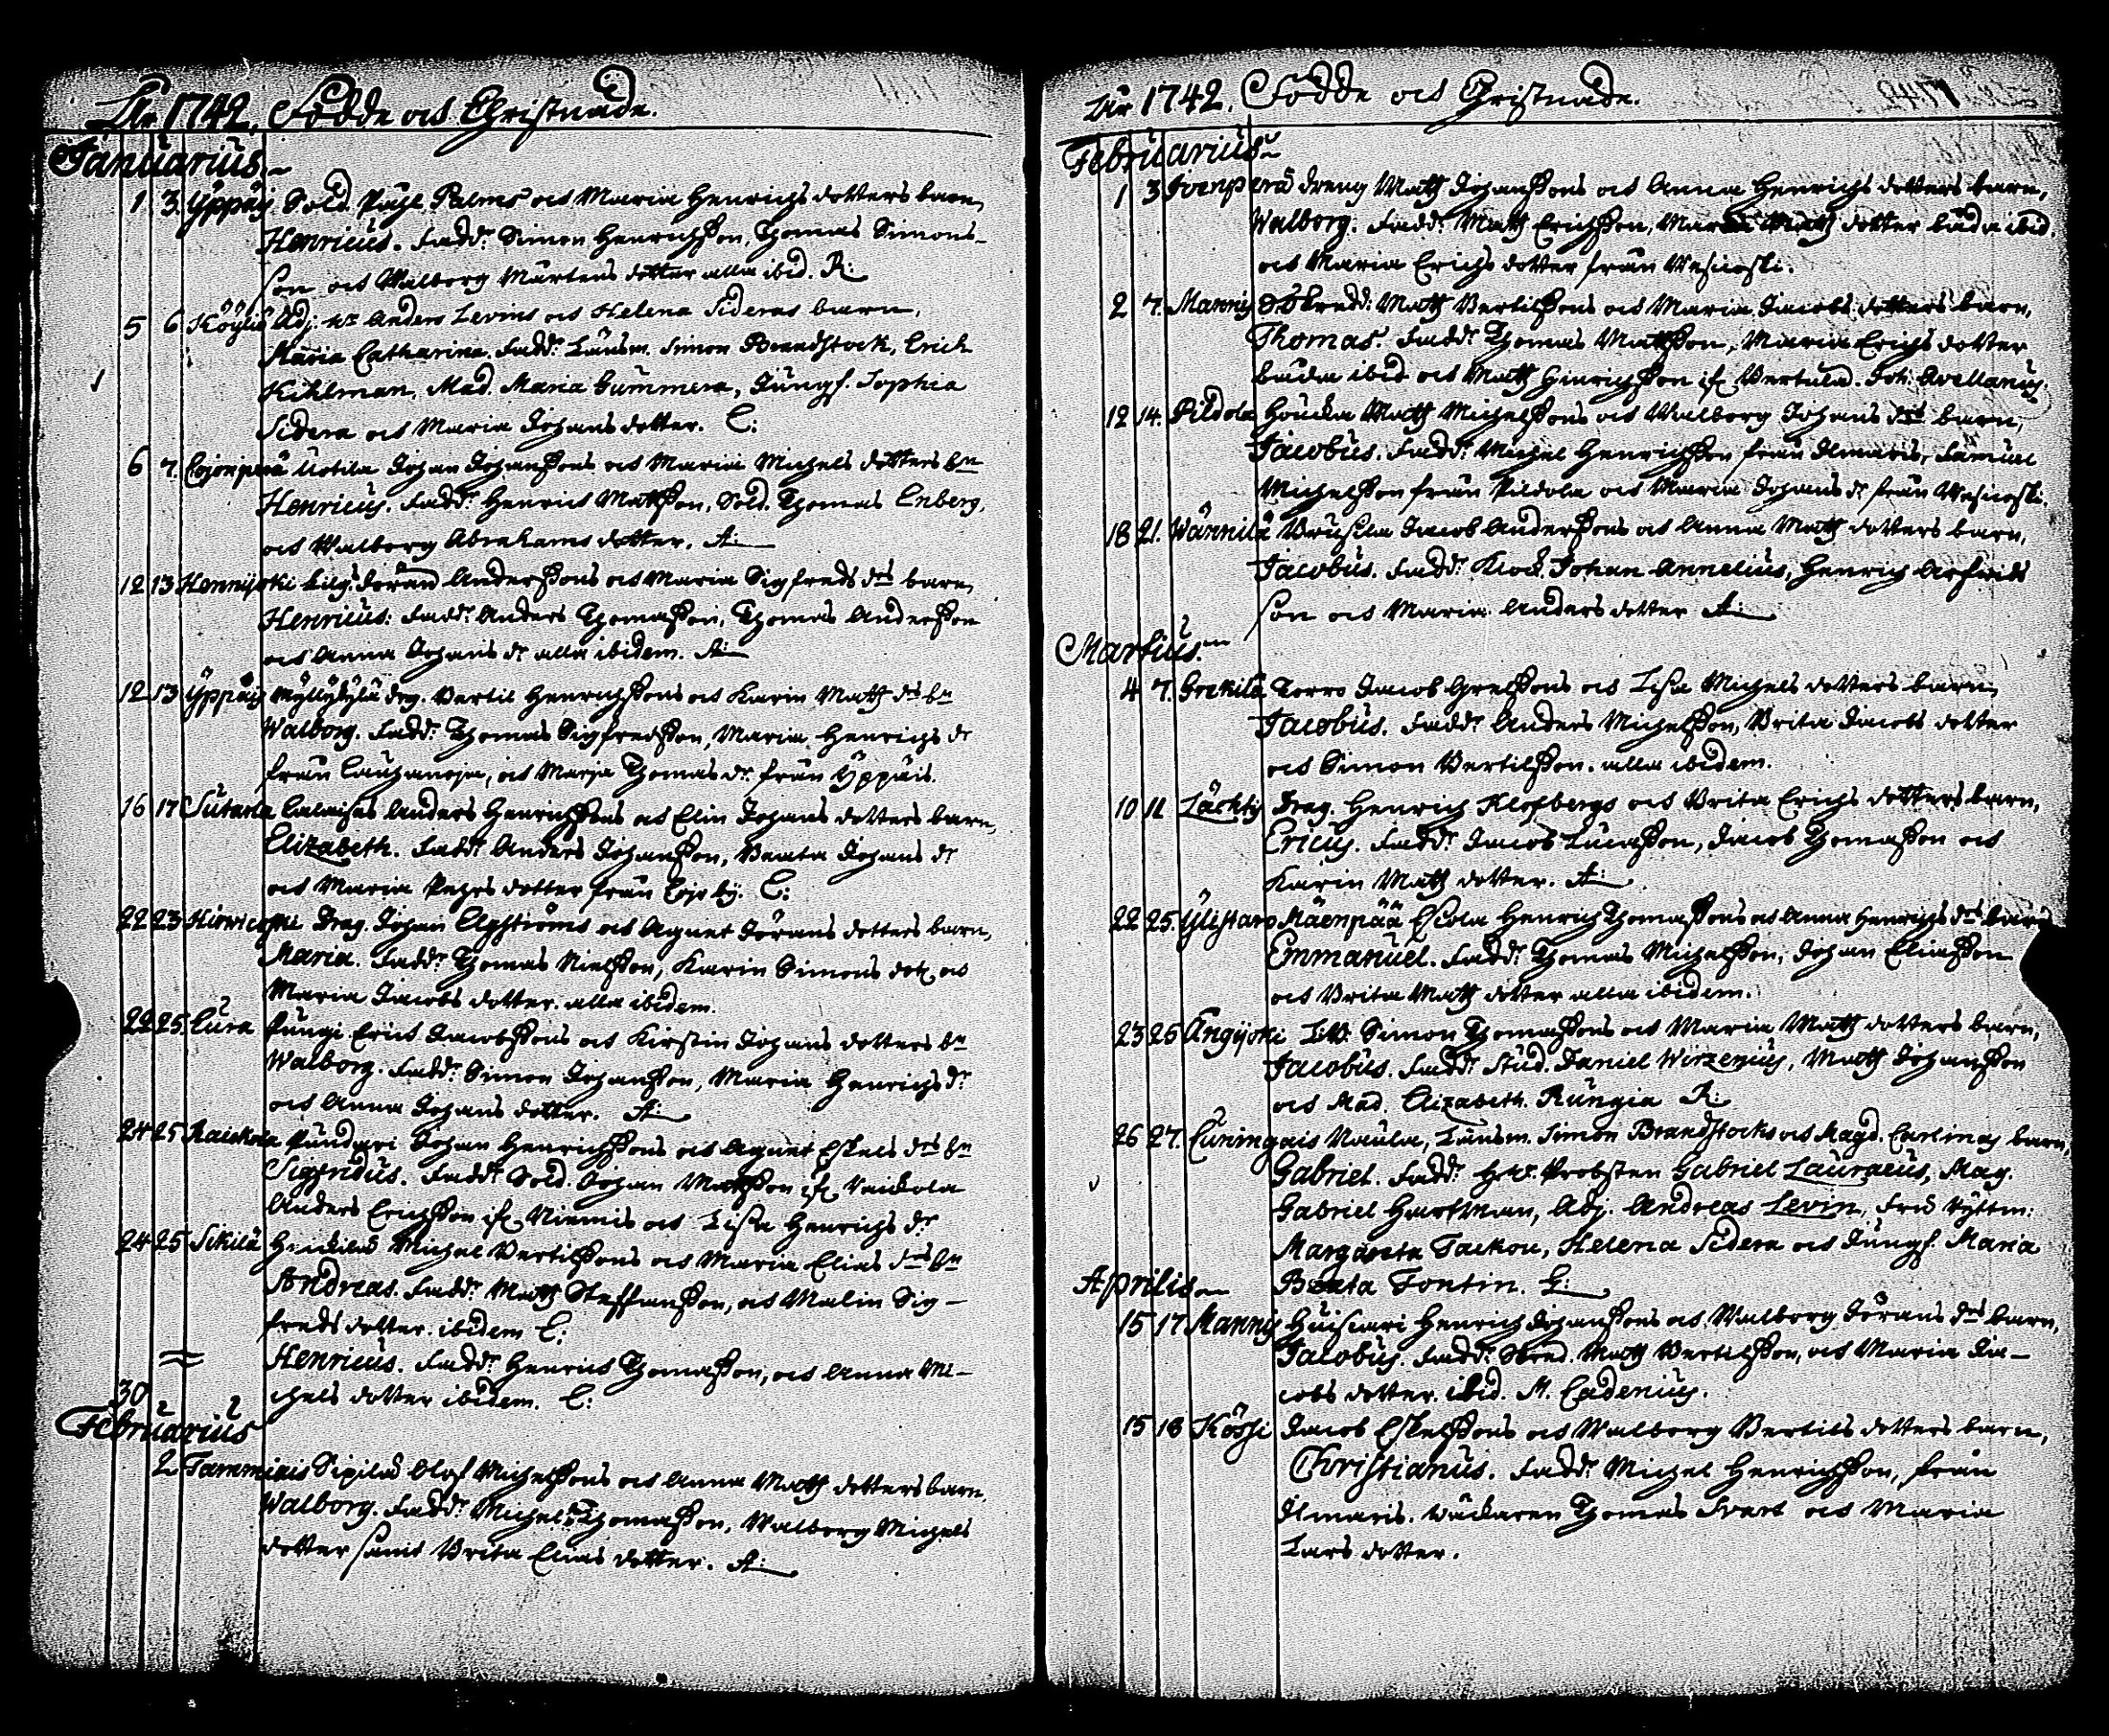 År 1742. Födde och Christnade.
Januarius
1 3. Yppäij Sold. Påhl Palms och Maria Henrichs dotters barn,
Henricus. Fadd: Simon Henrichsson, Thomas Simons-
son och Walborg Mårtens dotter alla ibid. R:
5 6 Köyliö Adj. Hr Anders Levins och Helena Sideras barn,
Maria Catharina. Fadd: Länsm. Simon Brandstock, Erich
Kihlman, Mad. Maria Gummera, Jungf. Sophia
Sidera och Maria Johans dotter. C:
6 7. Cojonperä Uotila Johan Johanssons och Maria Michels dotters bn
Henricus. Fadd: Henrich Mattsson, Sold. Thomas Enberg,
och Walborg Abrahams dotter. A:
12 13 Hennijoki Göran Anderssons och Maria Sigfreds drs barn,
Henricus: Fadd: Anders Thomasson, Thomas Andersson
och Anna Johans dr alla ibidem. A:
12 13 Yppäij Myllykylä drg. Bertil Henrichssons och Karin Matts drs bn
Walborg. Fadd: Thomas Sigfredsson, Maria Henrichs dr
från Cauhanoja, och Marja Thomas dr från Yppäis.
16 17 Sutarla Calaisas Anders Henrichssons och Elin Johans dotters barn,
Elizabeth. Fadd: Anders Johansson, Beata Johans dr
och Maria Pehrs dotter från Cojo bÿ. C:
22 23 Hirwicoski Drag. Johan Elgströms och Agnet Jörans dotters barn,
Maria. Fadd: Thomas Nielsson, Karin Simons dott och
Maria Jacobs dotter. alla ibidem.
22 25. Eura Pungi Erich Jacobssons och Kirstin Johans dotters bn
Walborg. Fadd: Simon Johansson, Maria Henrichs dr
och Anna Johans dotter. A:
24 25 Raickola Pundari Johan Henrichssons och Agnet Eskels drs bn
Sigfridus. Fadd: Sold. Johan Mattsson if: Raickola
Anders Erichsson if: Niemis och Lisa Henrichs dr
24 25 Sikilä Michel Bertilssons och Maria Elias drs bn
Andreas. Fadd: Matts Steffansson, och Malin Sig-
freds dotter. ibidem C:
= Henricus. Fadd: Henrich Thomasson, och Anna Mi-
chels dotter ibidem. C:
30
Februarius
2 Tammiais Sipilä Olof Michelssons och Anna Matts dotters barn,
Walborg. Fadd: Michel Thomasson, Walborg Michels
dotter samt Brita Elias dotter. A:
År 1742. Födde och Christnade.
Februarius
1 3 Ivenperä dreng Matts Johanssons och Anna Henrichs dotters barn,
Walborg. Fadd: Matts Erichsson, Maria Matts dotter båda ibid.
och Maria Erichs dotter från Wesicoski.
2 7. Mannis Matts Bertilssons och Maria Jacobs dotters barn,
Thomas. Fadd: Thomas Mattsson, Maria Erichs dotter
båda ibid och Matts Hinrichsson if: Vertula. Joh: Avellanus.
12 14. Pildola Houcka Matts Michelssons och Walborg Johans drs barn,
Jacobus. Fadd: Michel Henrichsson från Ilmaris, Samuel
Michelsson från Pildola och Maria Johans dr från Wesicoski.
18 21. Wännilä Urusila Jacob Anderssons och Anna Matts dotters barn,
Jacobus. Fadd: Klock. Johan Annelius, Henrich Arfwids
son och Maria Anders dotter A:
Martius.
4 7. Sorkila Torro Jacob Grelssons och Lisa Michels dotters barn,
Jacobus. Fadd: Anders Michelsson, Brita Jacobs dotter
och Simon Bertilsson. alla ibidem.
10 11 Lächty Drag. Henrich Klofbergs och Brita Erichs dotters barn,
Ericus. Fadd: Jacob Lucasson, Jacob Thomasson och
Karin Matts dotter. A:
22 25. Ylistaro Mäenpää Escola Henrich Thomassons och Anna Henrichs drs barn
Emmanuel. Fadd: Thomas Michelsson, Johan Eliasson
och Brita Matts dotter alla ibidem.
23 25 Kingijoki Simon Thomassons och Maria Matts dotters barn,
Jacobus. Fadd: Stud. Daniel Wirzenius, Matts Johansson
och Mad. Elizabeth Rungia R:
26 27. Cuningais Naula, Länsm. Simon Brandstocks och Magd. Carlinas barn,
Gabriel. Fadd: HWr. Probsten Gabriel Lauraeus, Mag.
Gabriel Hartman, Adj. Andreas Levin, Fru Ryttm:
Margareta Tackou, Helena Sidera och Jungf. Maria
Beata Fontin. L:
Aprilis
15 17 Mannis Huiscari Henrich Johanssons och Walborg Jörans drs barn,
Jacobus. Fadd: Matts Bertilsson, och Maria Ja-
cobs dotter. ibid. M. Cadenius.
15 18 Kössi Jacob Eskelssons och Walborg Bertils dotters barn,
Christianus. Fadd: Michel Henrichsson, från
Ilmaris. Wäckaren Thomas Svart och Maria
Lars dotter.